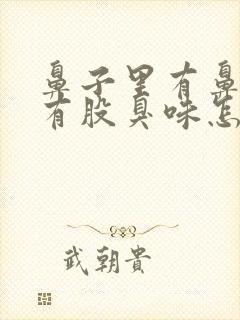 鼻子里有鼻
有股臭味怎
武朝貴